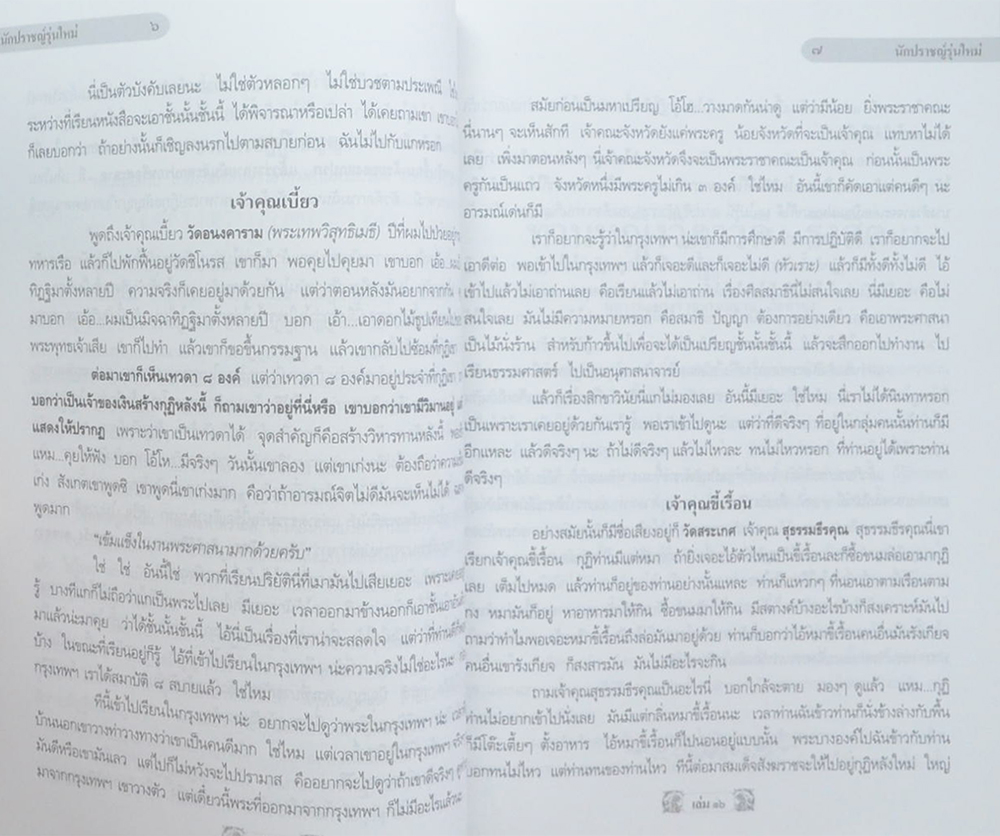 นักปราชญ์รุ่นใหม่ ๖
นี่เป็นตัวบังคับเลยนะ ไม่ใช่ตัวหลอกๆ ไม่ใช่บวชตามประเพณี
ระหว่างที่เรียนหนังสือจะเอาชั้นนั้นชั้นนี้ ได้พิจารณาหรือเปล่า ได้เคยถามเขา
ก็เลยบอกว่า ถ้าอย่างนั้นก็เชิญลงนรกไปตามสบายก่อน ฉันไม่ไปกับแกหรอก
เจ้าคุณเบี้ยว
พูดถึงเจ้าคุณเบี้ยว วัดอนงคาราม (พระเทพวิสุทธิเมธี) ปีที่ผมไปป่วยอยู่
ทหารเรือ แล้วก็ไปพักฟื้นอยู่วัดชิโนรส เขาก็มา พอคุยไปคุยมา เขาบอก เอ้อ...ผม
ทิฏฐิมาตั้งหลายปี ความจริงก็เคยอยู่มาด้วยกัน แต่ว่าตอนหลังมันอยากจาก
มาบอก เอ้อ...ผมเป็นมิจฉาทิฏฐิมาตั้งหลายปี บอก เอ้า...เอาดอกไม้ธูปเทียน
พระพุทธเจ้าเสีย เขาก็ไปทำ แล้วเขาก็ขอขึ้นกรรมฐาน แล้วเขากลับไปซ้อมที่กุฏิ
ต่อมาเขาก็เห็นเทวดา ๘ องค์ แต่ว่าเทวดา ๘ องค์มาอยู่ประจำที่กุฏิ
บอกว่าเป็นเจ้าของเงินสร้างกุฏิหลังนี้ ก็ถามเขาว่าอยู่ที่นี่หรือ เขาบอกว่าเขามีวิมานอยู่
แสดงให้ปรากฏ เพราะว่าเขาเป็นเทวดาได้ จุดสำคัญก็คือสร้างวิหารทานหลังนี้
แหม...คุยให้ฟัง บอก โอ้โห...มีจริงๆ วันนั้นเขาลอง แต่เขาเก่งนะ ต้องถือว่า
เก่ง สังเกตเขาพูดซิ เขาพูดนี่เขาเก่งมาก คือว่าถ้าอารมณ์จิตไม่ดีมันจะเห็นไม่ได้
พูดมาก
"เข้มแข็งในงานพระศาสนามากด้วยครับ"
ใช่ ใช่ อันนี้ใช่ พวกที่เรียนปริยัตินี่ที่เมามันไปเสียเยอะ เพราะ
รู้ บางทีแกก็ไม่ถือว่าแกเป็นพระไปเลย มีเยอะ เวลาออกมาข้างนอกก็เอาชั้นเอา
มาแล้วน่ะมาคุย ว่าได้ชั้นนั้นชั้นนี้ ไอ้นี่เป็นเรื่องที่เราน่าจะสลดใจ แต่ว่าที่ท่าน
บ้าง ในขณะที่เรียนอยู่ก็รู้ ไอ้ที่เข้าไปเรียนในกรุงเทพฯ น่ะความจริงไม่ใช่อะไร
กรุงเทพฯ เราได้สมาบัติ ๘ สบายแล้ว ใช่ไหม
ทีนี้เข้าไปเรียนในกรุงเทพฯ น่ะ อยากจะไปดูว่าพระในกรุงเทพฯ น่ะ
บ้านนอกเขาวางท่าวางทางว่าเขาเป็นคนดีมาก ใช่ไหม แต่เวลาเขาอยู่ในกรุงเทพฯ
มันดีหรือเขามันเลว แต่ไปก็ไม่หวังจะไปปรามาส คืออยากจะไปดูว่าถ้าเขาดีจริงๆ
มาจากกรุงเทพฯ เขาวางตัว แต่เดี๋ยวนี้พระที่ออกมาจากกรุงเทพฯ ก็ไม่มีอะไรแล้ว
๗ นักปราชญ์รุ่นใหม่
สมัยก่อนเป็นมหาเปรียญ โอ้โฮ...วางมาดกันน่าดู แต่ว่ามีน้อย ยิ่งพระราชาคณะ
นี่นานๆ จะเห็นสักที เจ้าคณะจังหวัดยังแค่พระครู น้อยจังหวัดที่จะเป็นเจ้าคุณ แทบหาไม่ได้
เลย เพิ่งมาตอนหลังๆ นี่เจ้าคณะจังหวัดจึงจะเป็นพระราชาคณะเป็นเจ้าคุณ ก่อนนั้นเป็นพระ
ครูกันเป็นแถว จังหวัดหนึ่งมีพระครูไม่เกิน ๓ องค์ ใช่ไหม อันนี้เขาก็คัดเอาแต่คนดีๆ นะ
อารมณ์เด่นก็มี
เราก็อยากจะรู้ว่าในกรุงเทพฯ น่ะเขาก็มีการศึกษาดี มีการปฏิบัติดี เราก็อยากจะไป
เอาดีต่อ พอเข้าไปในกรุงเทพฯ แล้วก็เจอะดีและก็เจอะไม่ดี (หัวเราะ) แล้วก็มีทั้งดีทั้งไม่ดี ไอ้
เข้าไปแล้วไม่เอาถ่านเลย คือเรียนแล้วไม่เอาถ่าน เรื่องศีลสมาธินี่ไม่สนใจเลย นี่มีเยอะ คือไม่
สนใจเลย มันไม่มีความหมายหรอก คือสมาธิ ปัญญา ต้องการอย่างเดียว คือเอาพระศาสนา
เป็นไม้นั่งร้าน สำหรับก้าวขึ้นไปเพื่อจะได้เป็นเปรียญชั้นนั้นชั้นนี้ แล้วจะสึกออกไปทำงาน ไป
เรียนธรรมศาสตร์ ไปเป็นอนุศาสนาจารย์
แล้วก็เรื่องสิกขาวินัยนี่แกไม่มองเลย อันนี้มีเยอะ ใช่ไหม นี่เราไม่ได้นินทาหรอก
เป็นเพราะเราเคยอยู่ด้วยกันเรารู้ พอเราเข้าไปดูนะ แต่ว่าที่ดีจริงๆ ที่อยู่ในกลุ่มคนนั้นท่านก็มี
อีกแหละ แล้วดีจริงๆ นะ ถ้าไม่ดีจริงๆ แล้วไม่ไหวละ ทนไม่ไหวหรอก ที่ท่านอยู่ได้เพราะท่าน
ดีจริงๆ
เจ้าคุณขี้เรื้อน
อย่างสมัยนั้นก็มีชื่อเสียงอยู่ก็ วัดสระเกศ เจ้าคุณ สุธรรมธีรคุณ สุธรรมธีรคุณนี่เขา
เรียกเจ้าคุณขี้เรื้อน กุฏิท่านมีแต่หมา ถ้ายิ่งเจอะไอ้ตัวไหนเป็นขี้เรื้อนละก็ซื้อขนมล่อเอามากุฏิ
เลย เต็มไปหมด แล้วท่านก็อยู่ของท่านอย่างนั้นแหละ ท่านก็แหวกๆ ที่นอนเอาตามเรือนตาม
กง หมามันก็อยู่ หาอาหารมาให้กิน ซื้อขนมมาให้กิน มีสตางค์บ้างอะไรบ้างก็สงเคราะห์มันไป
ถามว่าทำไมพอเจอะหมาขี้เรื้อนถึงล่อมันมาอยู่ด้วย ท่านก็บอกว่าไอ้หมาขี้เรื้อนคนอื่นมันรังเกียจ
คนอื่นเขารังเกียจ ก็สงสารมัน มันไม่มีอะไรจะกิน
ถามเจ้าคุณสุธรรมธีรคุณเป็นอะไรนี่ บอกใกล้จะตาย มองๆ ดูแล้ว แหม...กุฏิ
ท่านไม่อยากเข้าไปนั่งเลย มันมีแต่กลิ่นหมาขี้เรื้อนนะ เวลาท่านฉันข้าวท่านก็นั่งข้างล่างกับพื้น
ก็มีโต๊ะเตี้ยๆ ตั้งอาหาร ไอ้หมาขี้เรื้อนก็ไปนอนอยู่แบบนั้น พระบางองค์ไปฉันข้าวกับท่าน
บอกทนไม่ไหว แต่ท่านทนของท่านไหว ทีนี้ต่อมาสมเด็จสังฆราชจะให้ไปอยู่กุฏิหลังใหม่ ใหญ่
เล่ม ๑๖